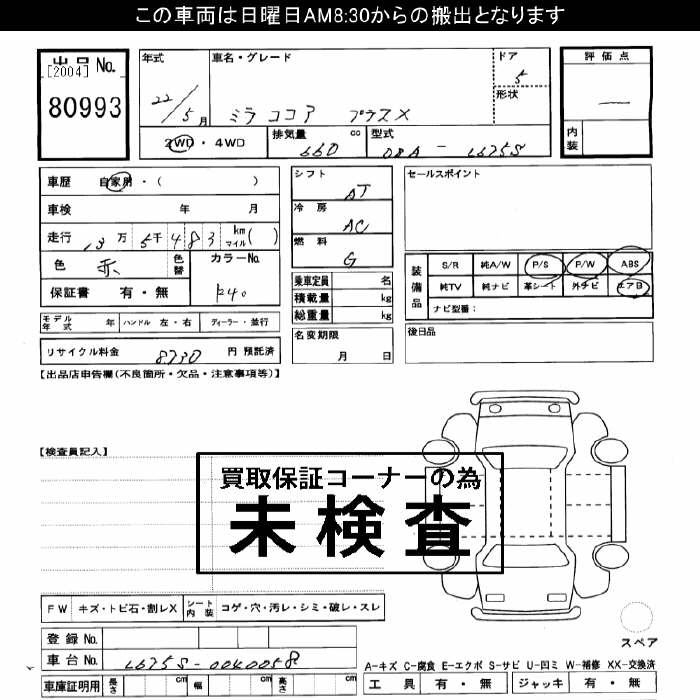 この車両は日曜日AM8:30からの搬出となります
出品No.
[2004]
80993
年式
22/5月
車名・グレード
ミラ ココア プラスX
ドア
5
形状
2WD・4WD
排気量 cc
660
型式
DBA-L675S
評価点
—
内装
車歴 自家用・( )
車検 年 月
走行 13万5千483 km マイル( )
色 赤 色替
カラーNo.
R40
保証書 有・無
モデル年式 年
ハンドル 左・右
ディーラー・並行
リサイクル料金 8730 円 預託済
シフト
AT
冷房
AC
燃料
G
乗車定員 名
積載量 kg
総重量 kg
名変期限
月 日
セールスポイント
装備品
S/R 純A/W P/S P/W ABS
純TV 純ナビ 革シート 外ナビ エアB
ナビ型番:
後日品
【出品店申告欄(不良箇所・欠品・注意事項等)】
【検査員記入】
買取保証コーナーの為
未検査
FW キズ・トビ石・割レX
シート内装 コゲ・穴・汚レ・シミ・破レ・スレ
登録No.
車台No. L675S-0040058
車庫証明用 長さ cm 幅 cm 高さ cm
スペア
A-キズ C-腐食 E-エクボ S-サビ U-凹ミ W-補修 XX-交換済
工具 有・無
ジャッキ 有・無